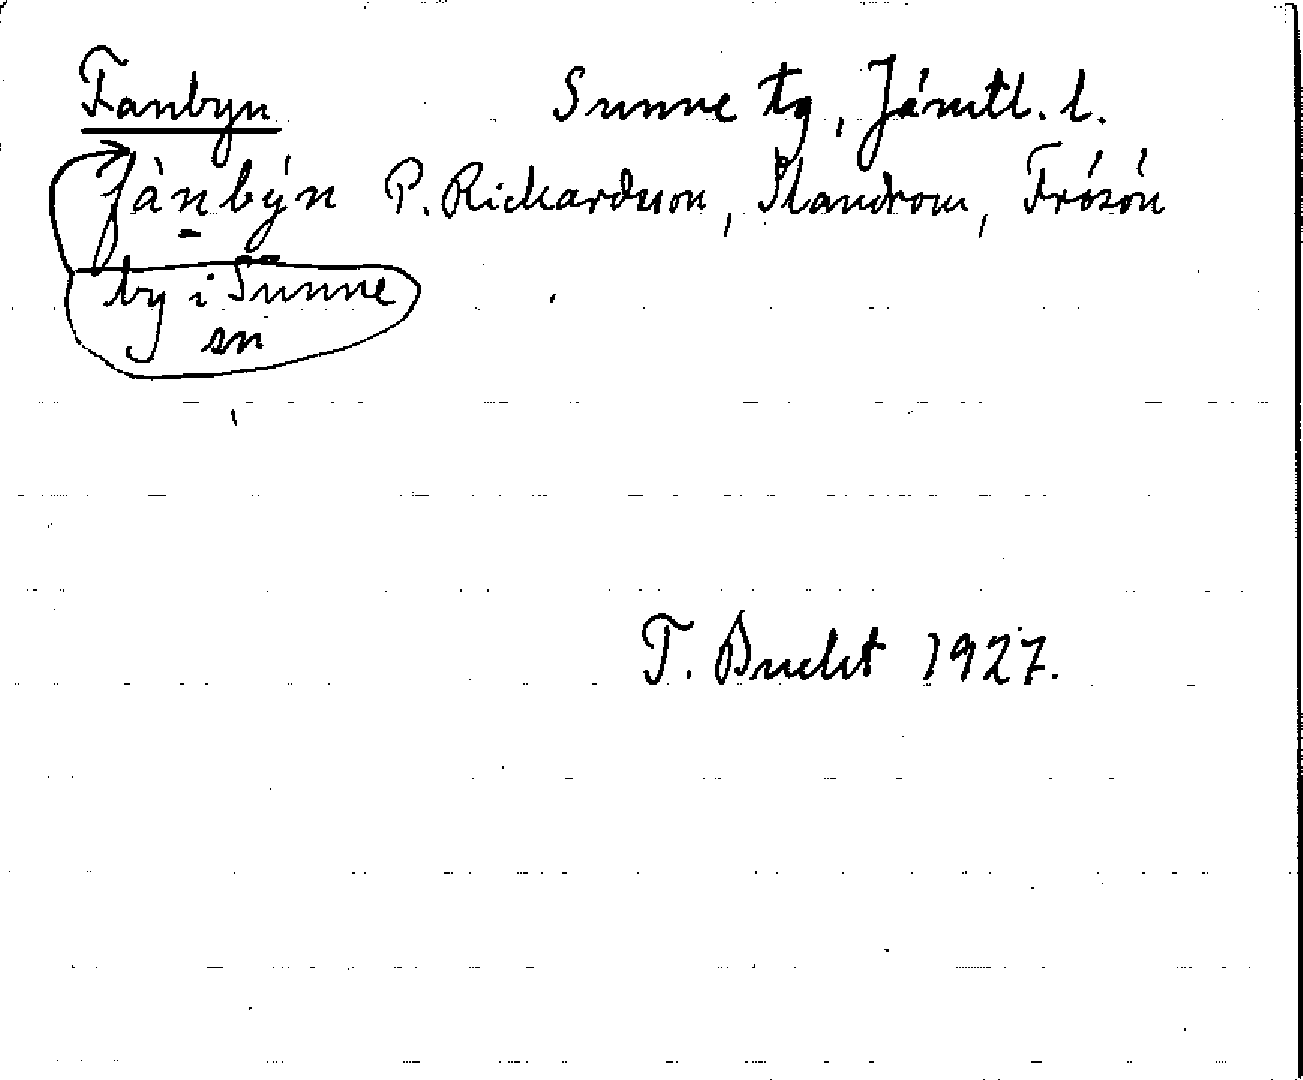 Fanbyn Sunne tg, Jämtl. l.
fànbýn P. Rickardsson, Slandrom, Frösön
by i Sunne
sn
T. Bucht 1927.